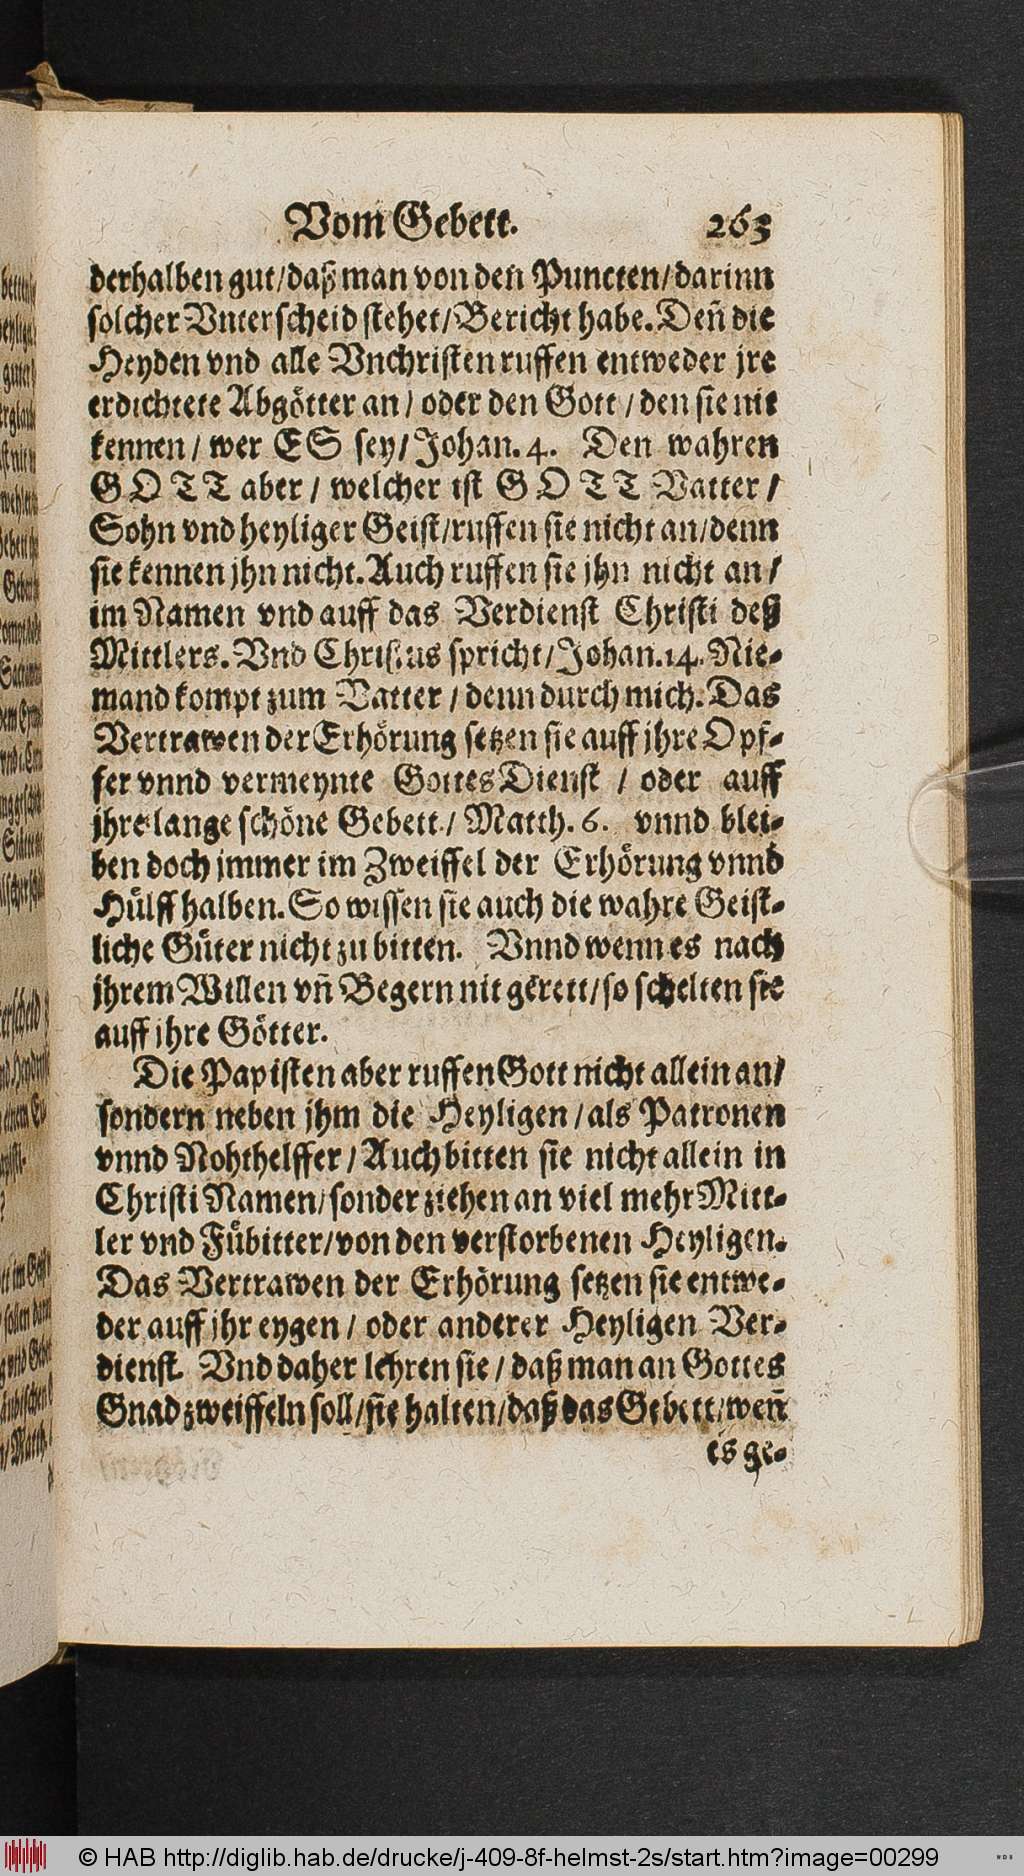 Vom Gebett. 263
derhalben gut/daß man von den Puncten/darinn
solcher Vnterscheid stehet/Bericht habe. Deñ die
Heyden vnd alle Vnchristen ruffen entweder jre
erdichtete Abgötter an/ oder den Gott/den sie nit
kennen/ wer ES sey/Johan. 4. Den wahren
GOTT aber/ welcher ist GOTT Vatter/
Sohn vnd heyliger Geist/ruffen sie nicht an/denn
sie kennen jhn nicht. Auch ruffen sie jhn nicht an/
im Namen vnd auff das Verdienst Christi deß
Mittlers. Vnd Christus spricht/Johan. 14. Nie-
mand kompt zum Vatter/denn durch mich. Das
Vertrawen der Erhörung setzen sie auff jhre Opf-
fer vnnd vermeynte Gottes Dienst/ oder auff
jhre lange schöne Gebett/ Matth. 6. vnnd blei-
ben doch jmmer im Zweiffel der Erhörung vnnd
Hülff halben. So wissen sie auch die wahre Geist-
liche Güter nicht zu bitten. Vnnd wenn es nach
jhrem Willen vñ Begern nit gerett/so schelten sie
auff jhre Götter.
Die Papisten aber ruffen Gott nicht allein an/
sondern neben jhm die Heyligen/als Patronen
vnnd Nohthelffer/ Auch bitten sie nicht allein in
Christi Namen/sonder ziehen an viel mehr Mitt-
ler vnd Fübitter/von den verstorbenen Heyligen.
Das Vertrawen der Erhörung setzen sie entwe-
der auff jhr eygen/ oder anderer Heyligen Ver-
dienst. Vnd daher lehren sie/ daß man an Gottes
Gnad zweiffeln soll/sie halten/daß das Gebett/weñ
es ge-
© HAB http://diglib.hab.de/drucke/j-409-8f-helmst-2s/start.htm?image=00299